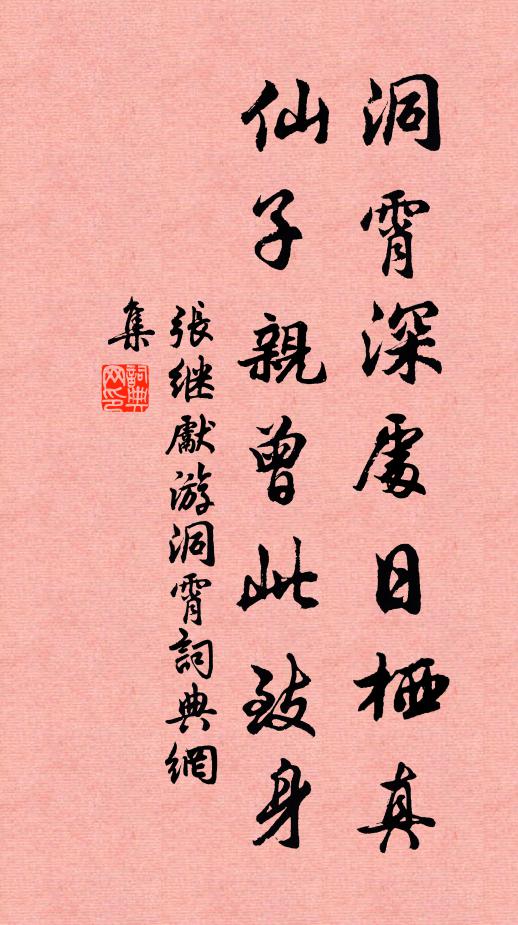 洞霄深處日栖真
仙子親曾此致身
張继獻游洞霄詞典網
集
詞典网印